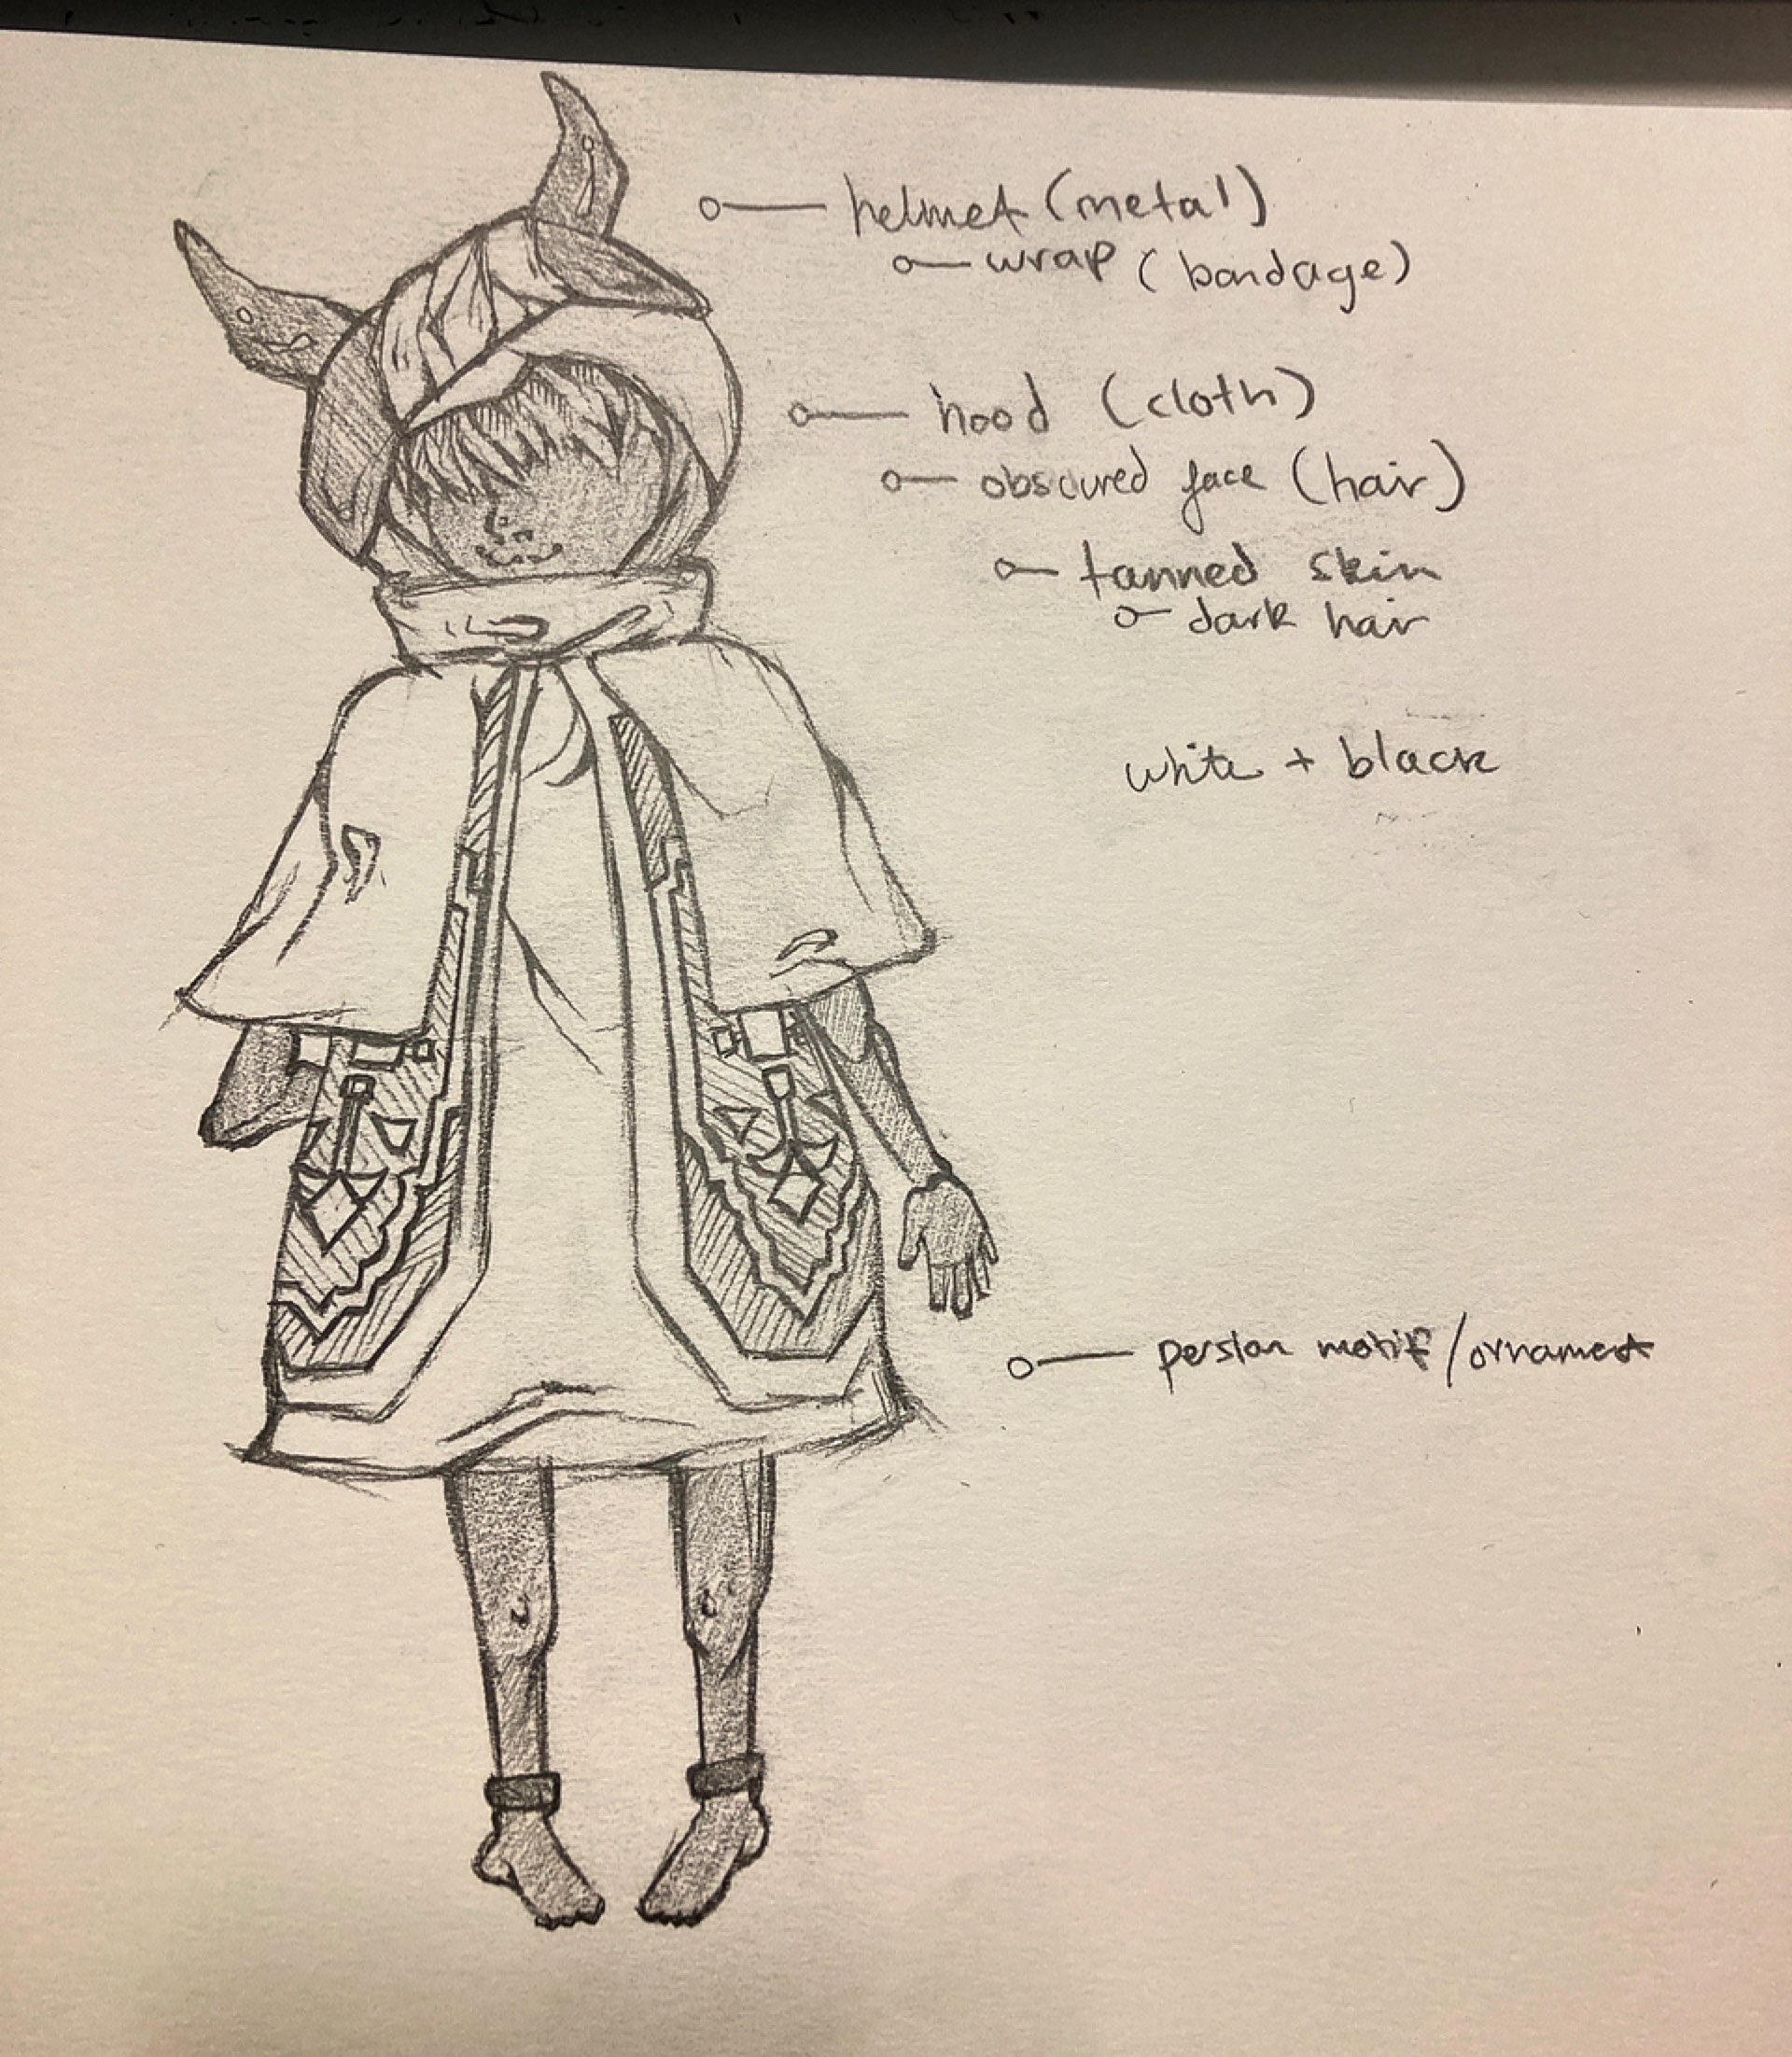 helmet (metal)
wrap (bandage)
hood (cloth)
obscured face (hair)
tanned skin
dark hair
white + black
persian motif/ornament